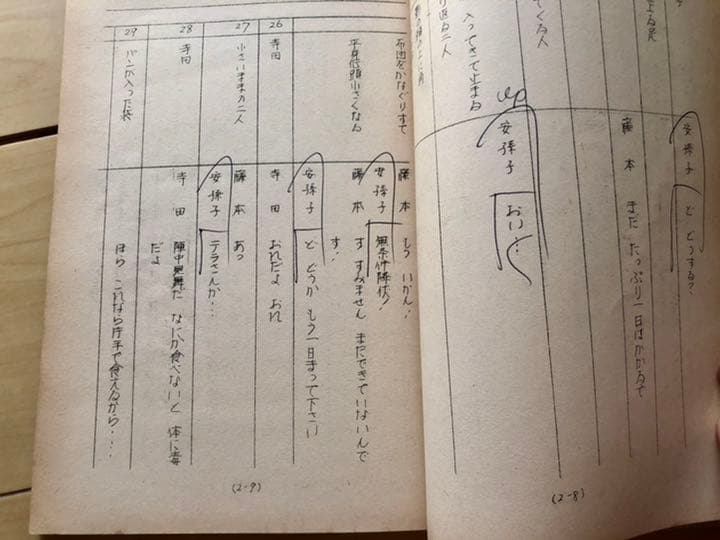 安孫子 ど どうする?
藤本 まだ たっぷり一日はかかるで
てくる人
入ってきて止まる
up
安孫子 おい…
り返る二人
(2-8)
布団をかなぐりすて
藤本 もう いかん!
安孫子 無条件降伏!
平身低頭小さくなる
藤本 す すみません まだできていないんで
す!
安孫子 ど どうか もう一日まって下さい
26 寺田
寺田 おれだよ おれ
27 小さいままの二人
藤本 あっ
安孫子 テラさんか…
28 寺田
寺田 陣中見舞だ なにか食べないと 体に毒
だよ
29 パンが入った袋
ほら これなら片手で食えるから・・・・
(2-9)